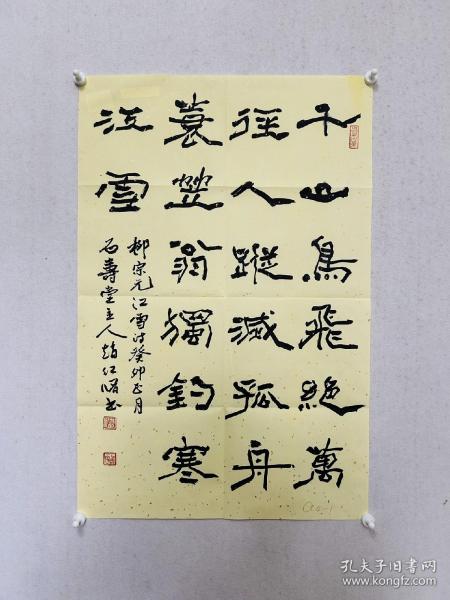 千山鳥飛絕萬
徑人蹤滅孤舟
蓑笠翁獨釣寒
江雪
柳宗元江雪诗癸卯正月
石壽堂主人趙书
孔夫子旧书网
www.kongfz.com